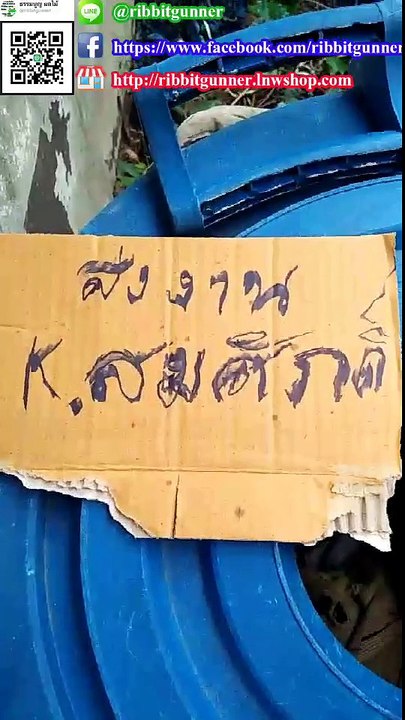 ธรรมนูญ ผลไม้
@ribbitgunner
LINE
@ribbitgunner
https://www.facebook.com/ribbitgunner
http://ribbitgunner.lnwshop.com
ส่งงาน
K.สมศักดิ์